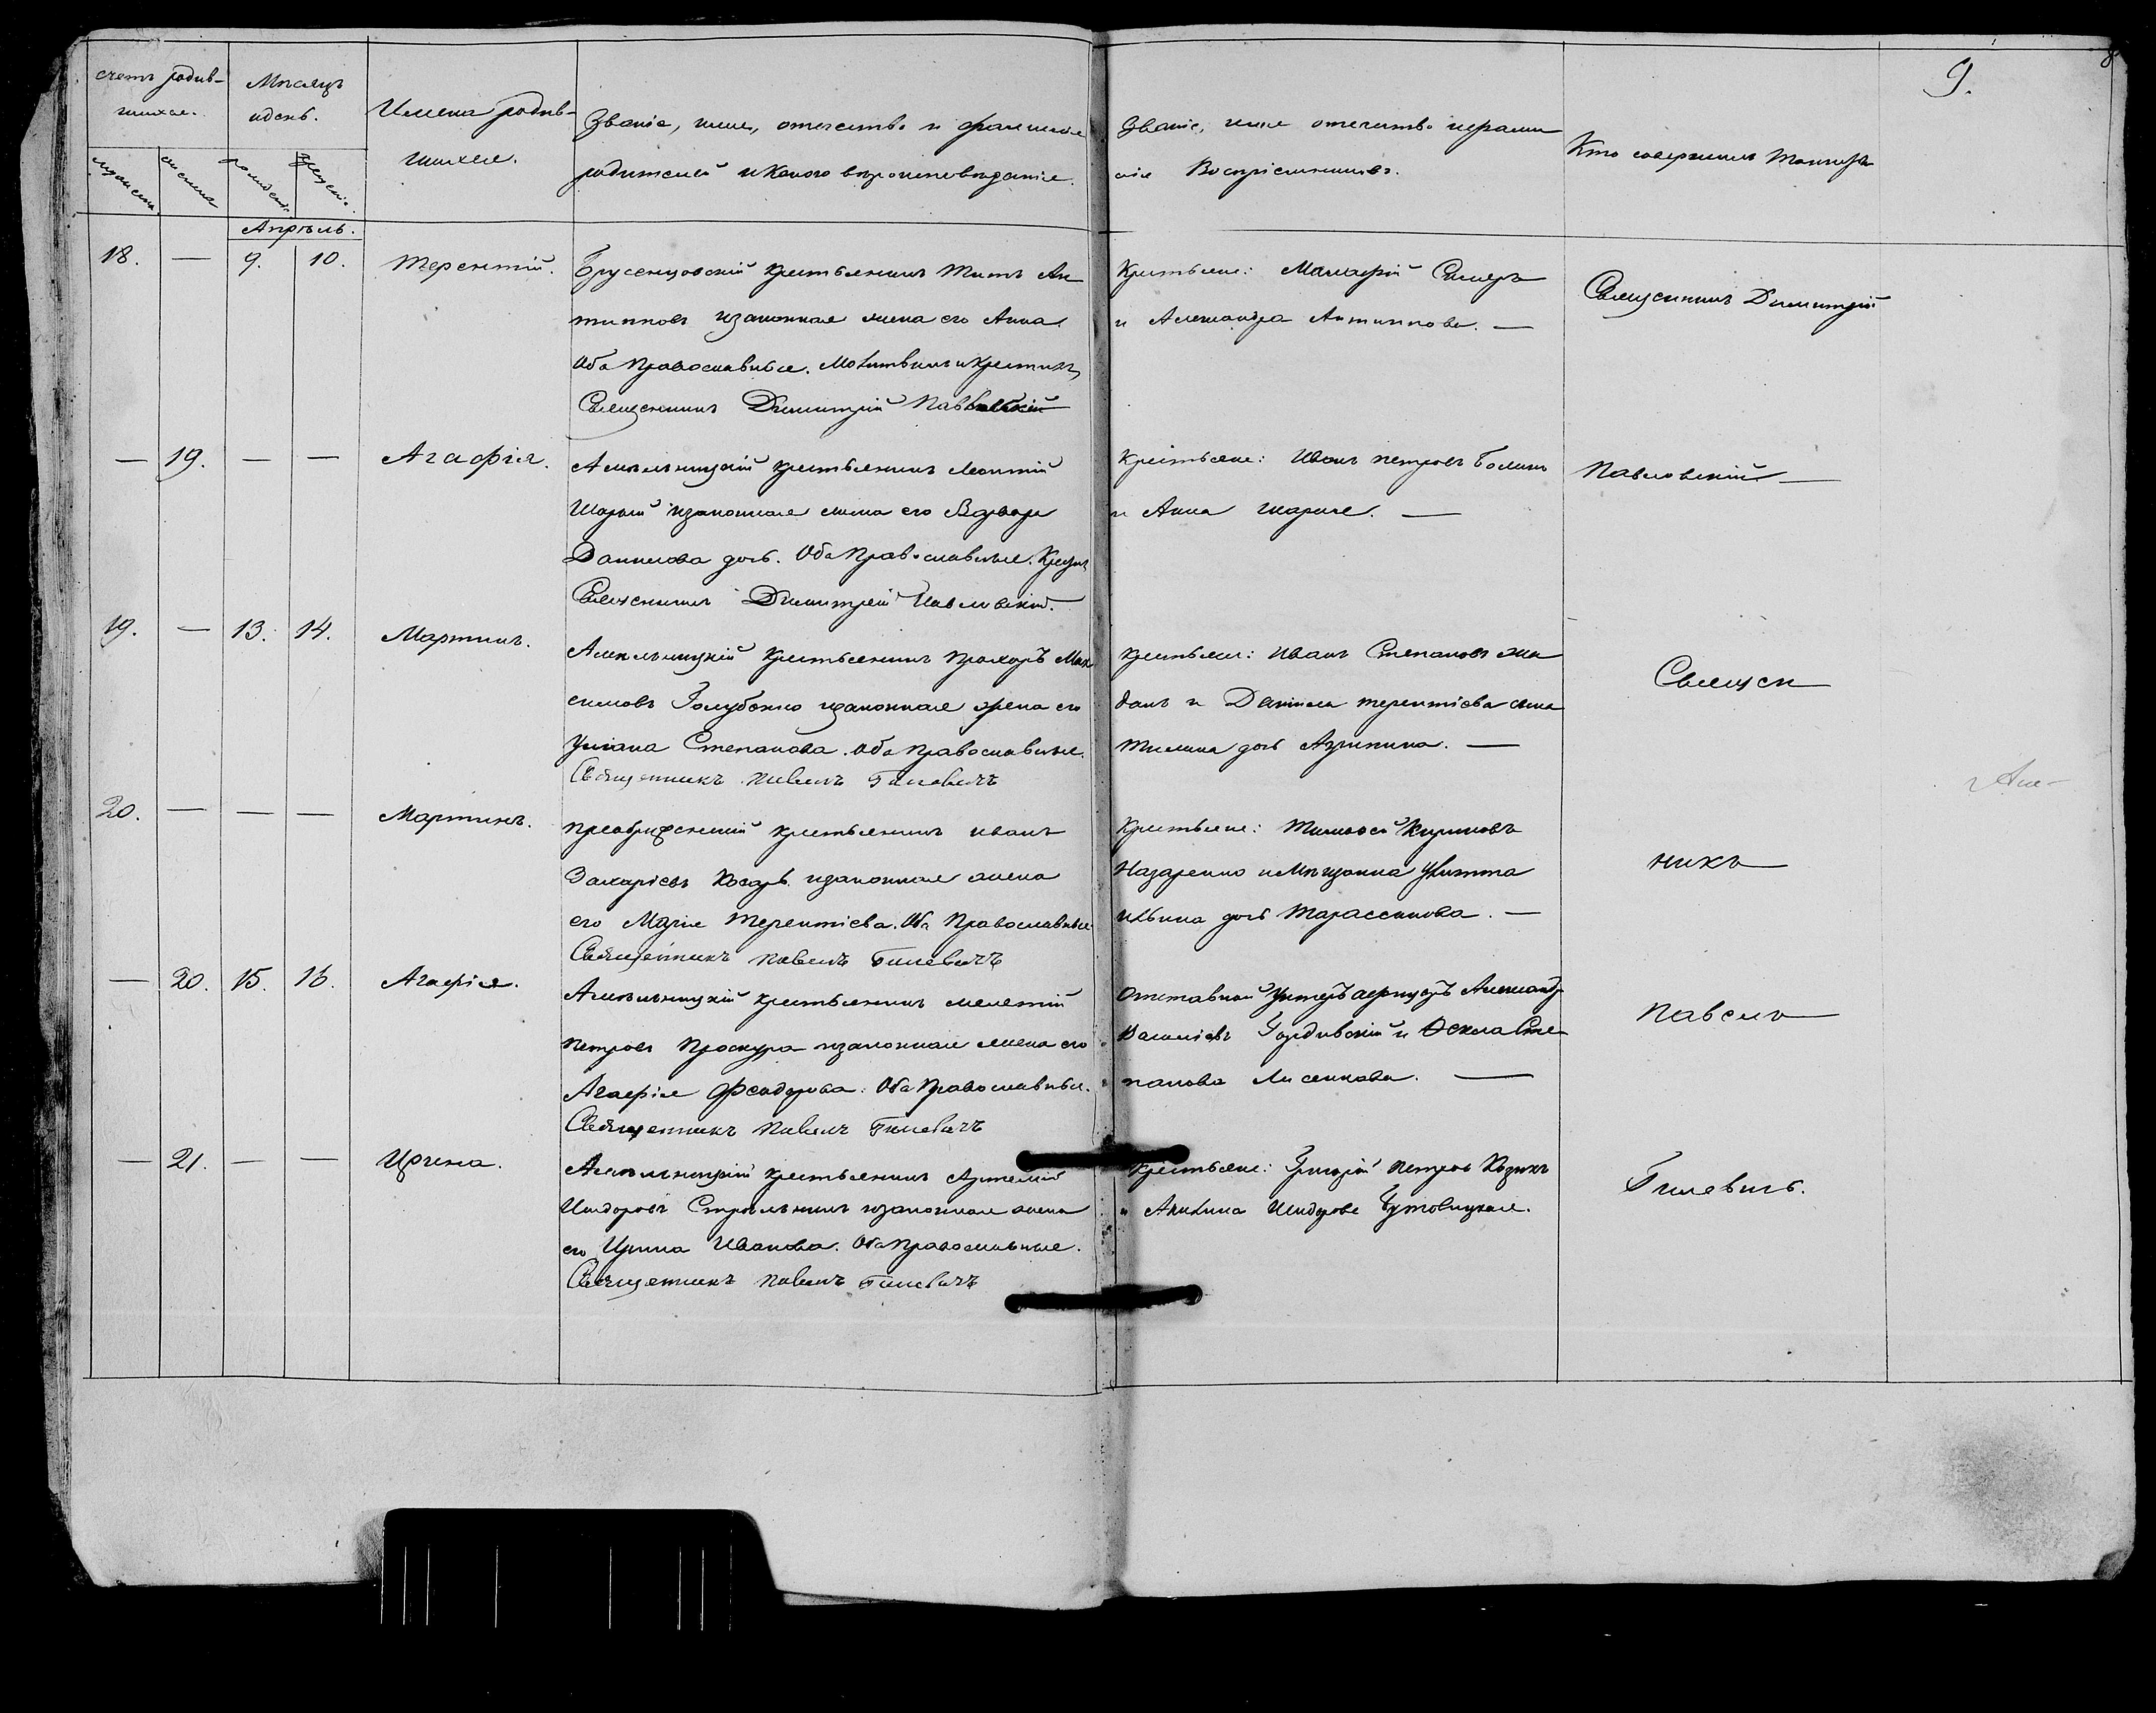 счетъ родив-
шихся.
Мѣсяцъ
и день.
Имена родив-
шихся.
Званіе, имя, отечество и фамилія
родителей и какого вѣроисповѣданія.
Званіе, имя отечество и фами
лія Воспріемниковъ.
Кто совершилъ таинство
9.
8
мужеска
женска
рожденія
крещенія
Апрѣль.
18. — 9. 10. Терентій.
Брусенцовскій крестьянинъ Титъ Ан
типовъ и законная жена его Анна.
Оба православные. Молитвилъ и крестилъ
Священникъ Димитрій Павловскій
Крестьяне:
и Александра Антипова. —
Священникъ Димитрій
— 19. — — Агафія.
крестьянинъ Леонтій
Шарый и законная жена его Варвара
Данилова дочь. Оба Православные. Крестилъ
Священникъ Димитрій Павловскій.
Крестьяне: Иванъ Петровъ
и Анна Шарая. —
Павловскій —
19. — 13. 14. Мартинъ.
крестьянинъ Прохоръ Мак
симовъ Голубенко и законная жена его
Уліана Степанова. Оба православные.
Священникъ Павелъ Гилевичъ
Крестьяне: Иванъ Степановъ Жа
данъ и Даніила Терентіева сына
дочь Агрипина. —
Священ
20. — — — Мартинъ.
Преображенскій крестьянинъ Иванъ
Захаріевъ Косарь и законная жена
его Марія Терентіева. Оба Православные
Священникъ Павелъ Гилевичъ
Крестьяне: Тимофей Кириловъ
Назаренко и Мѣщанка Улитта
Ильина дочь Тарассенкова. —
никъ
— 20. 15. 16. Агафія.
крестьянинъ Мелетій
Петровъ Проскура и законная жена его
Агафія Феодорова. Оба Православные.
Священникъ Павелъ Гилевичъ
Отставной унтеръ-офицеръ Александръ
Василіевъ Гордивскій и Фекла Сте
панова Лисенкова. —
Павелъ
— 21. — — Ирина.
крестьянинъ Артемій
Исидоровъ Стрѣльникъ и законная жена
его Ирина Иванова. Оба Православные.
Священникъ Павелъ Гилевичъ
Крестьяне: Григорій Петровъ
и Акилина Исидорова
Гилевичъ.